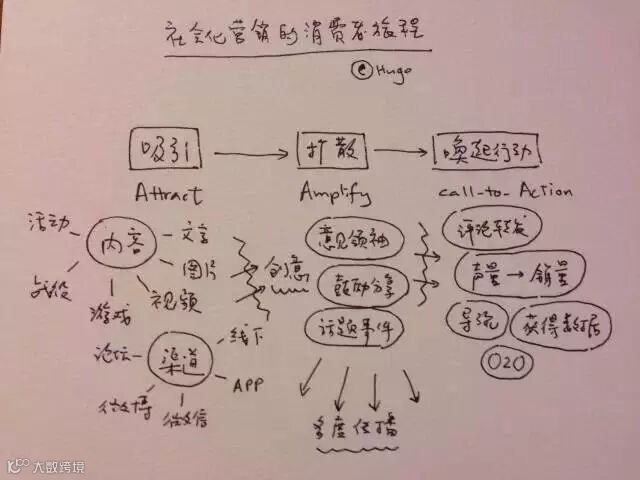 社会化营销的消费者旅程
@Hugo
吸引 扩散 唤起行动
Attract Amplify call-to-Action
活动
内容
文字
图片
视频
游戏
战役
创意
意见领袖
鼓动分享
话题事件
评论转发
声量→销量
导流
获得数据
O2O
论坛
渠道
线下
APP
微博
微信
多度传播
大数跨境